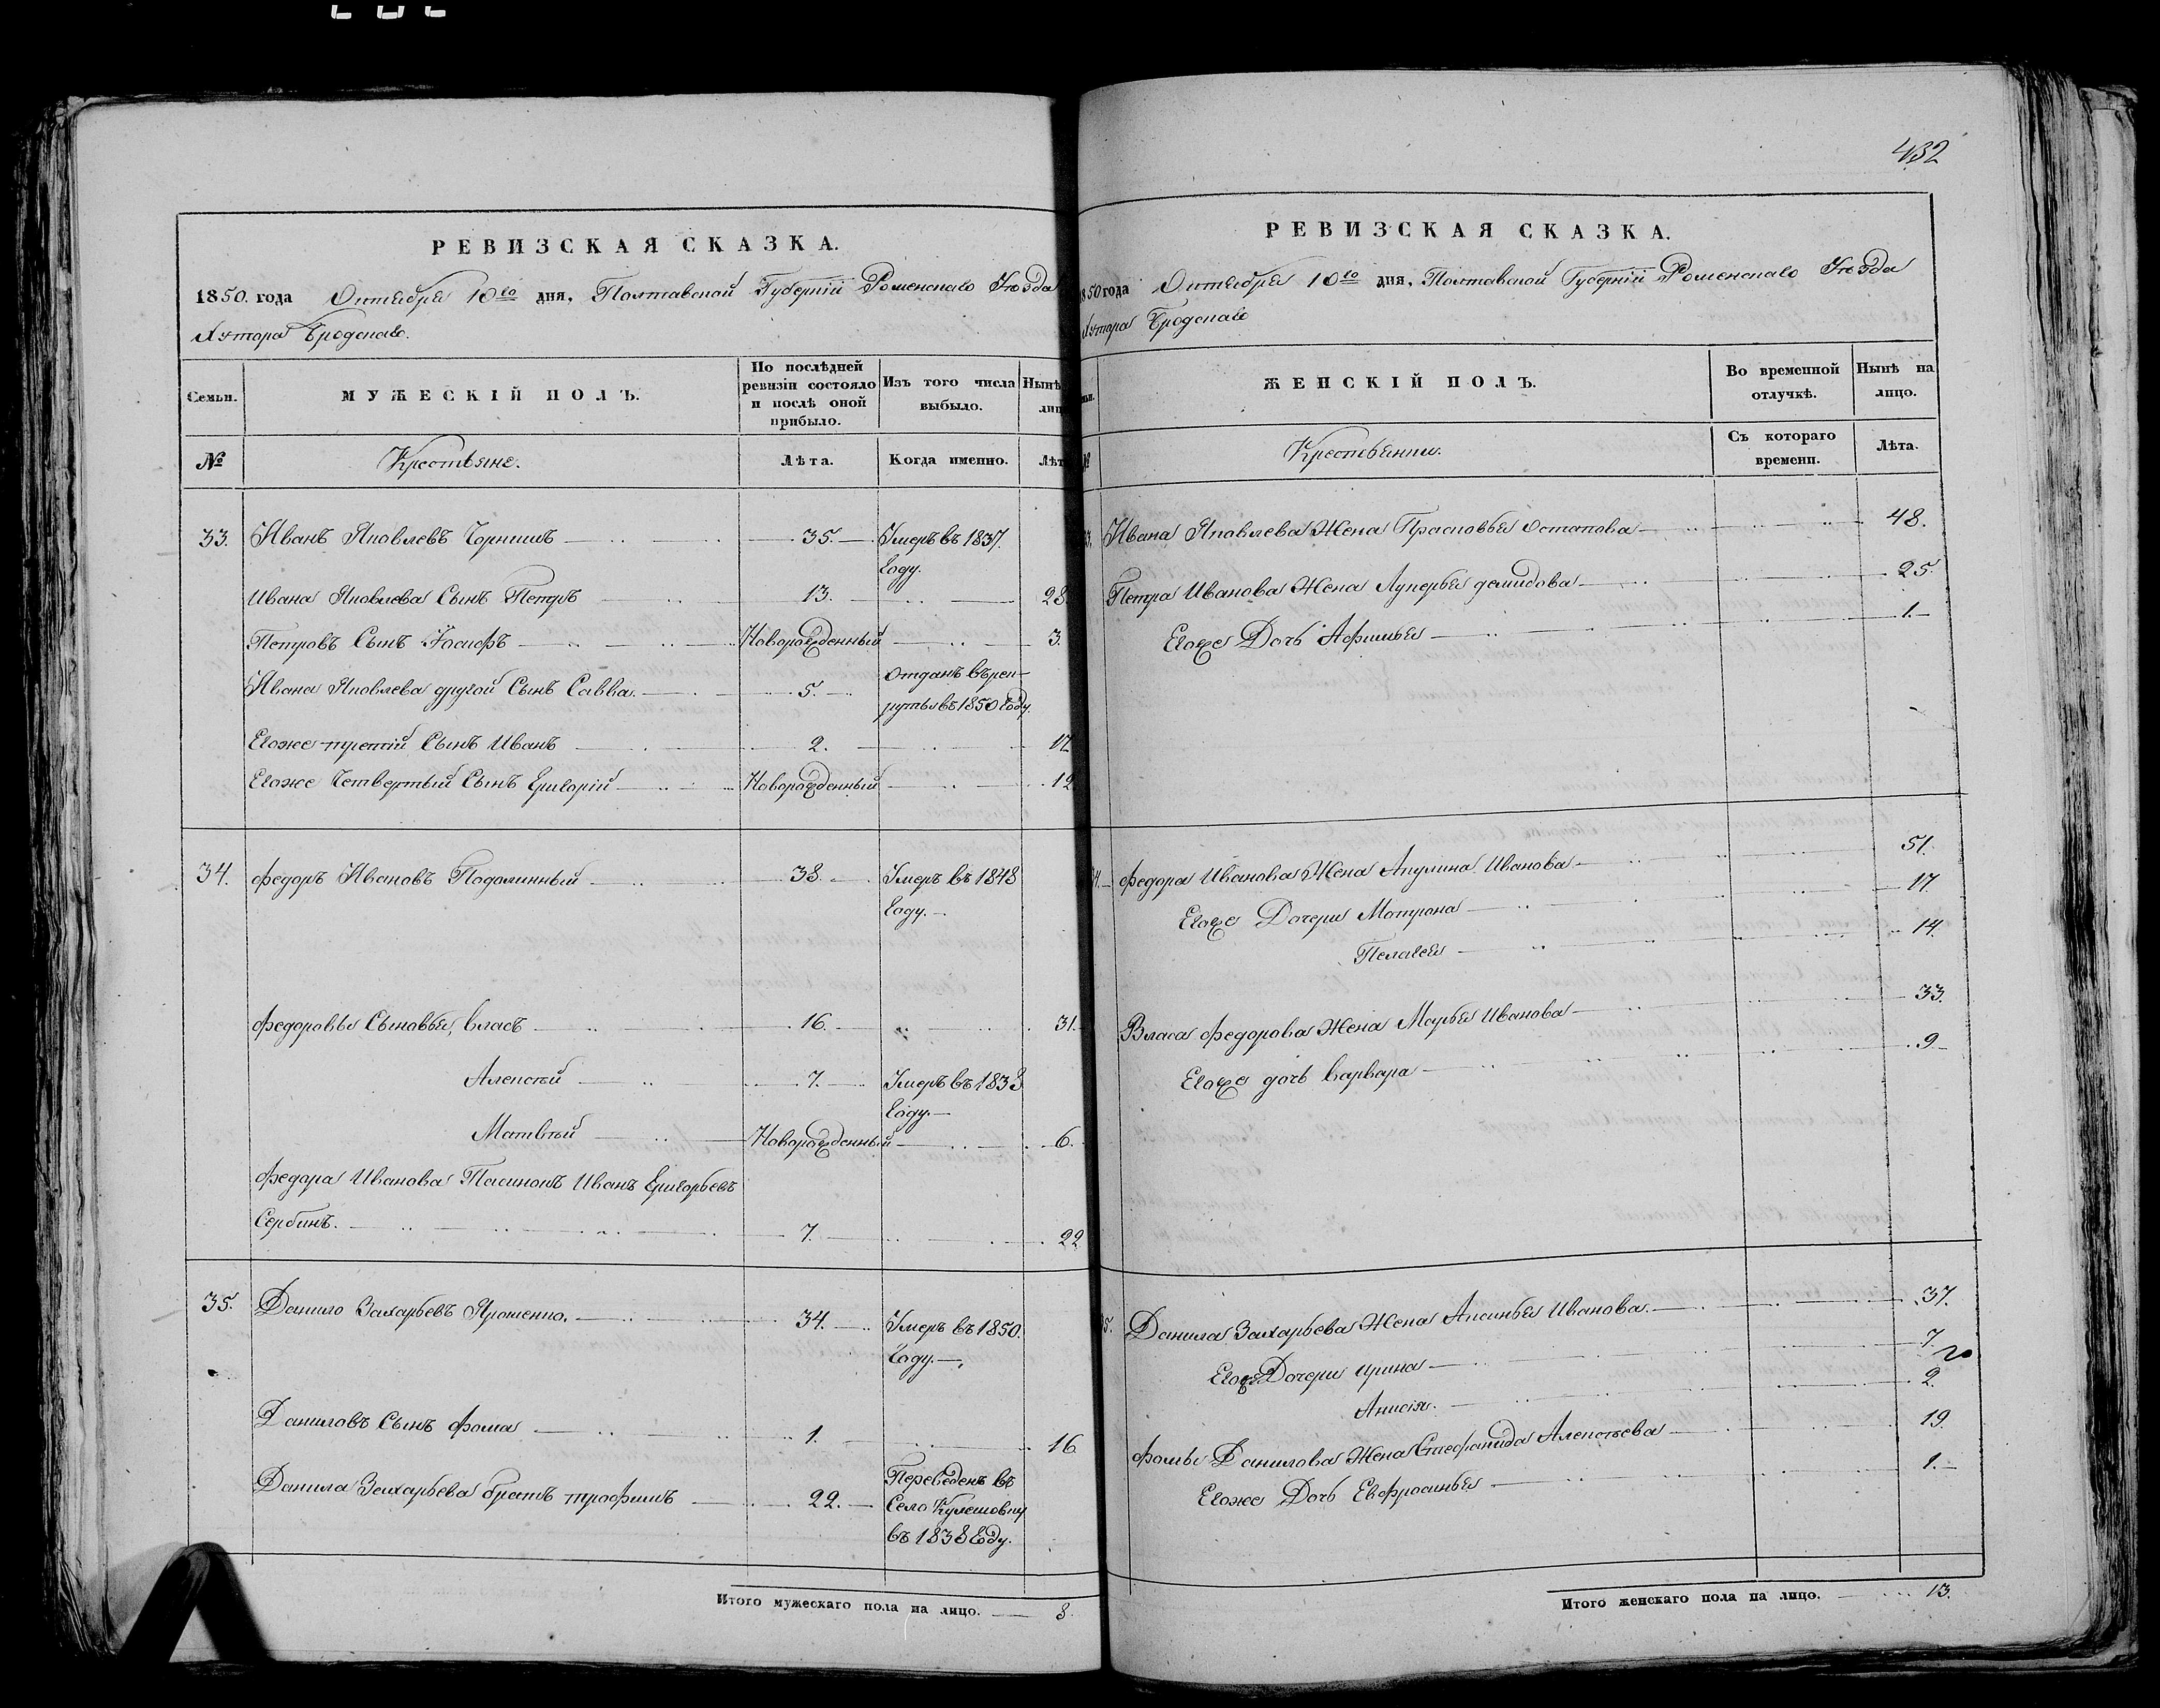 432
РЕВИЗСКАЯ СКАЗКА.
1850. года Октября 10го дня, Полтавской Губерніи Роменскаго Уѣзда
Хутора Бродскаго.
Семьи.
МУЖЕСКІЙ ПОЛЪ.
По послѣдней
ревизіи состояло
и послѣ оной
прибыло.
Изъ того числа
выбыло.
Нынѣ
лиц
№
Крестьяне.
Лѣта.
Когда именно.
Лѣт
33. Иванъ Яковлевъ Чорнышъ 35. Умеръ въ 1837.
году.
Ивана Яковлева Сынъ Петръ 13. 28.
Петровъ Сынъ Іосифъ Новорожденный 3.
Ивана Яковлева другой Сынъ Савва. 5. Отданъ въ рек-
руты въ 1850 году.
Егоже третій Сынъ Иванъ 2. 17
Егоже Четвертый Сынъ Григорій Новорожденный 12
34. Федоръ Ивановъ Подолинный 38. Умеръ въ 1848
году.
Федоровы Сыновья, Власъ 16. 31.
Алексѣй 7. Умеръ въ 1838
году.
Матвѣй Новорожденный 6.
Федора Иванова Пасинокъ Иванъ Григорьевъ
Сербинъ. 7. 22
35. Данило Захарьевъ Ярошенко. 34. Умеръ въ 1850.
году.
Даниловъ Сынъ Фома 1. 16
Данила Захарьева братъ Трофимъ 22. Переведенъ въ
Село Кулешовку
въ 1838 году.
Итого мужескаго пола на лицо. 8.
РЕВИЗСКАЯ СКАЗКА.
1850 года Октября 10го дня, Полтавской Губерніи Роменскаго Уѣзда
Хутора Бродскаго
ЖЕНСКІЙ ПОЛЪ.
Во временной
отлучкѣ.
Нынѣ на
лицо.
Крестьянки.
Съ котораго
времени.
Лѣта.
Ивана Яковлева Жена Прасковья Остапова 48.
Петра Иванова Жена Лукерья Демидова 25.
Егоже Дочь Афимья 1.
Федора Иванова Жена Акулина Иванова 51.
Егоже Дочери Матрона 17.
Пелагея 14.
Власа Федорова Жена Марья Иванова 33.
Егоже дочь Варвара 9
35. Данила Захарьева Жена Аксинья Иванова. 37.
Егоже Дочери Ирина 7.
Анисія. 2.
Фомы Данилова Жена Стефанида Алексѣева 19.
Егоже Дочь Евфросинья 1.
Итого женскаго пола на лицо. 13.